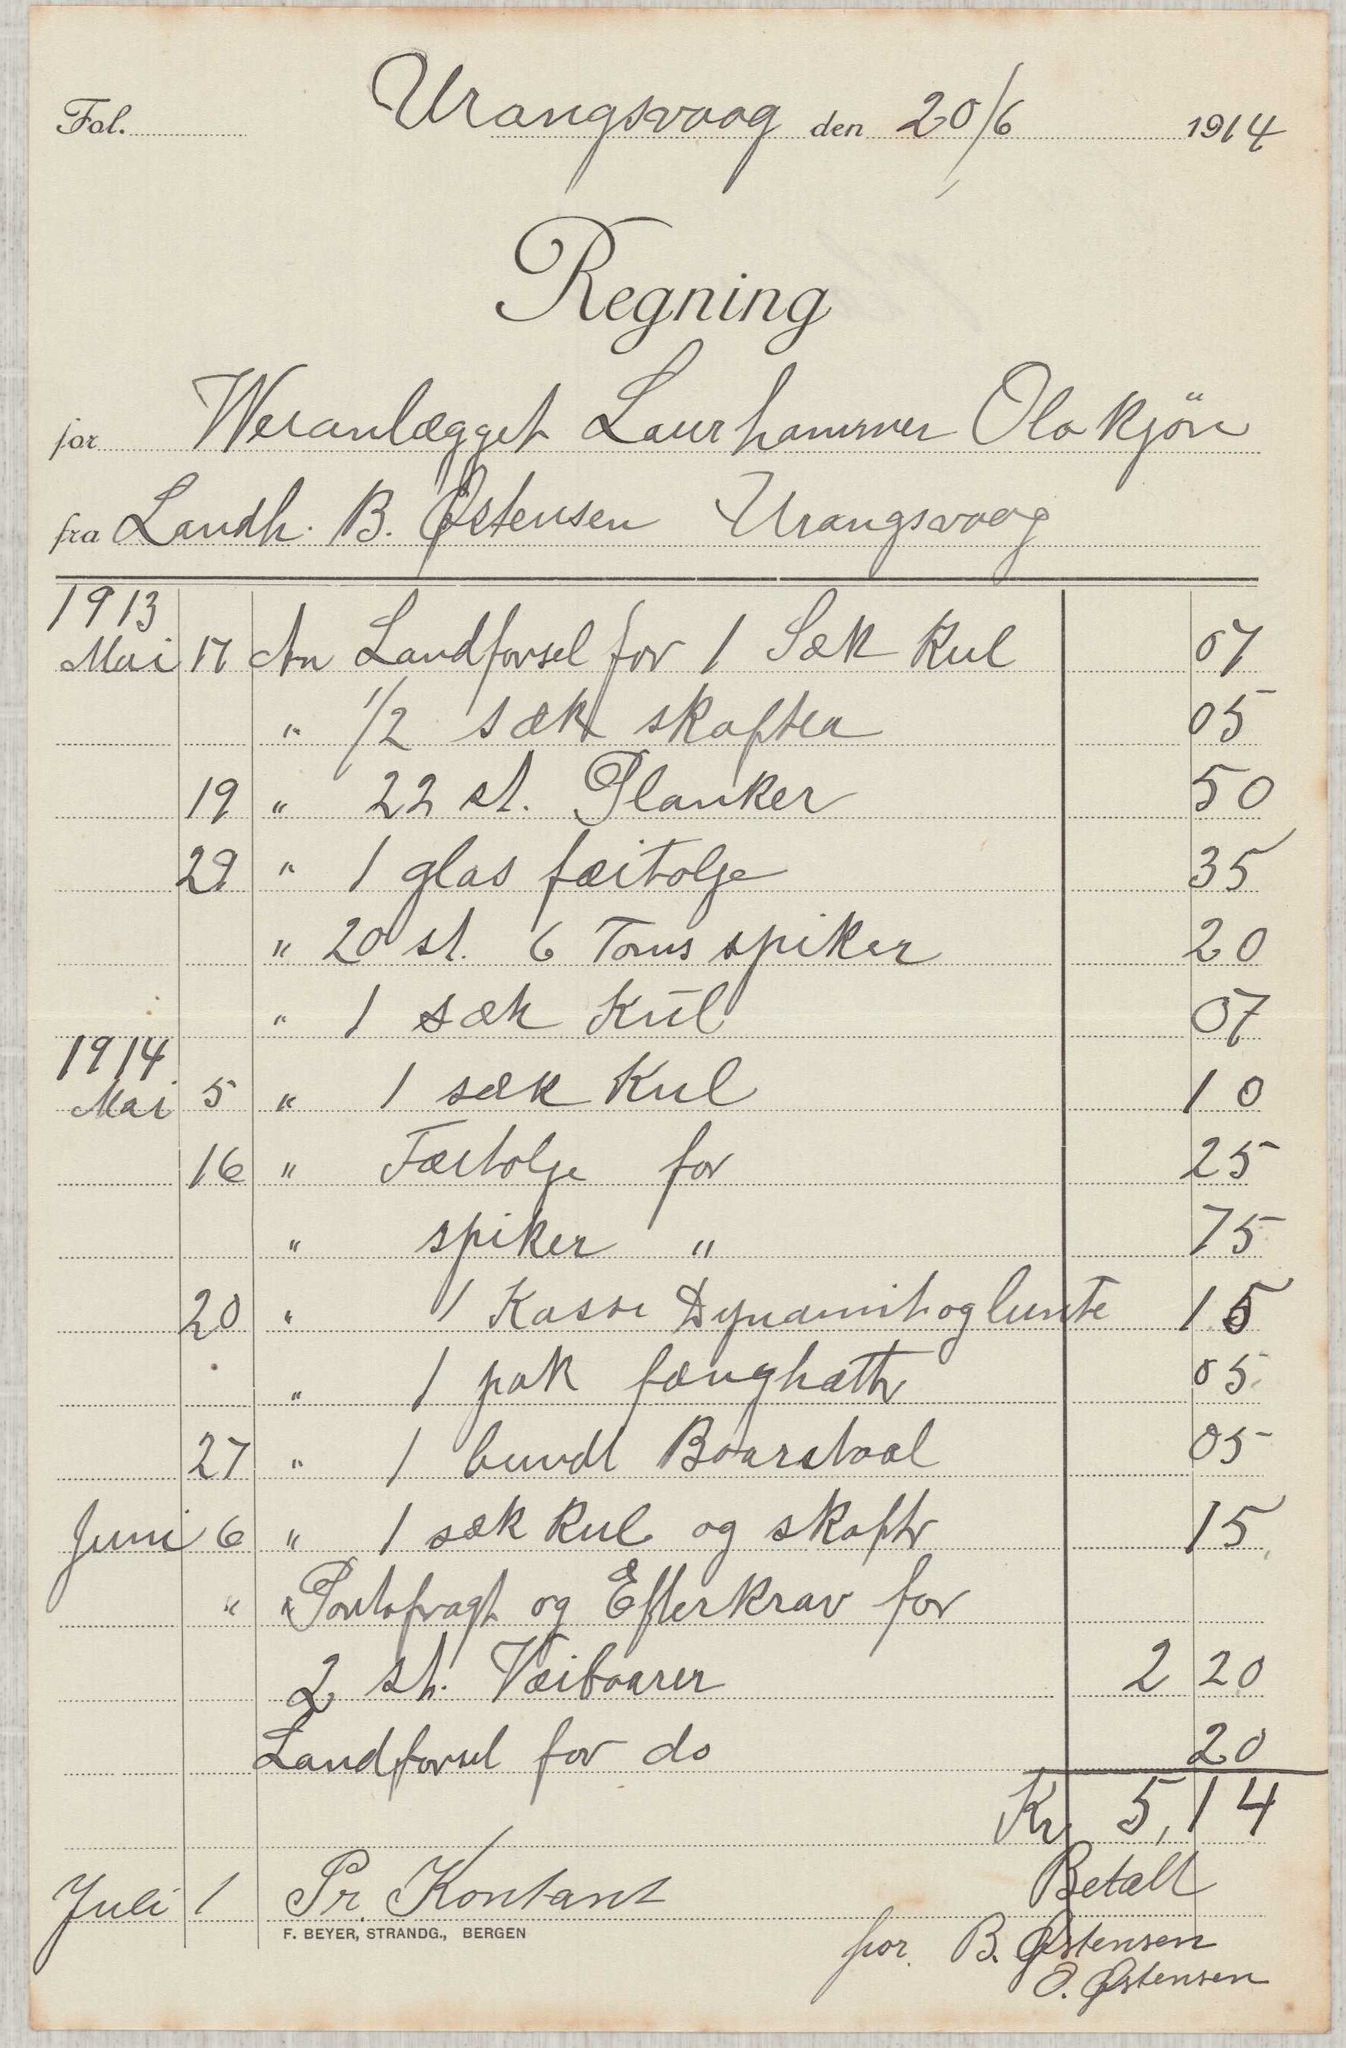 Fol. Urangsvaag den 20/6 1914
Regning
for Weranlægget Laurhammer Olakjön
fra Landh. B. Østensen Urangsvaag
1913
Mai 17 An Landforsel for 1 Sæk Kul 07
" 1/2 sæk skafter 05
19 " 22 st. Planker 50
29 " 1 glas fæitolge 35
" 20 st. 6 Toms spiker 20
" 1 sæk Kul 07
1914
Mai 5 " 1 sæk Kul 10
16 " Fæitolge for 25
" spiker " 75
20 " 1 Kasse Dynamit og lunte 15
" 1 pak fænghætte 05
27 " 1 bundt Boarstaal 05
Juni 6 " 1 sæk Kul og skafte 15
" " Portofragt og Efterkrav for
2 st. Væiboarer 2 20
Landforsel for do 20
Kr 5,14
Betalt
Juli 1 Pr. Kontant
F. BEYER, STRANDG., BERGEN
for B. Østensen
O. Østensen